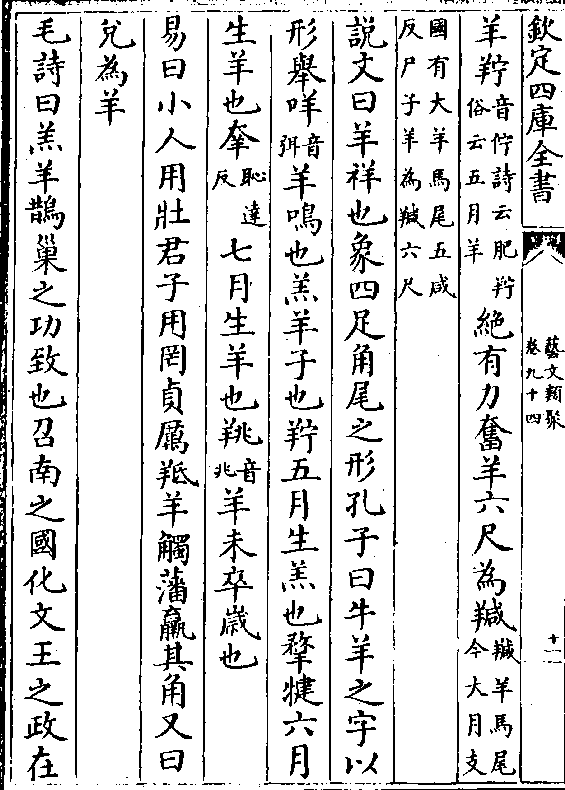 欽定四庫全書
藝文類聚
卷九十四
十一
羊羜音佇詩云肥羜俗云五月羊絶有力奮羊六尺為羬羬羊馬尾今大月支
國有大羊馬尾五咸反尸子羊為羬六尺
説文曰羊祥也象四足角尾之形孔子曰牛羊之字以
形舉咩音弭羊鳴也羔羊子也羜五月生羔也䍮𤚩六月
生羊也羍恥達反七月生羊也羜音兆羊未卒嵗也
易曰小人用壯君子用罔貞厲羝羊觸藩羸其角又曰
兊為羊
毛詩曰羔羊鵲巢之功致也召南之國化文王之政在